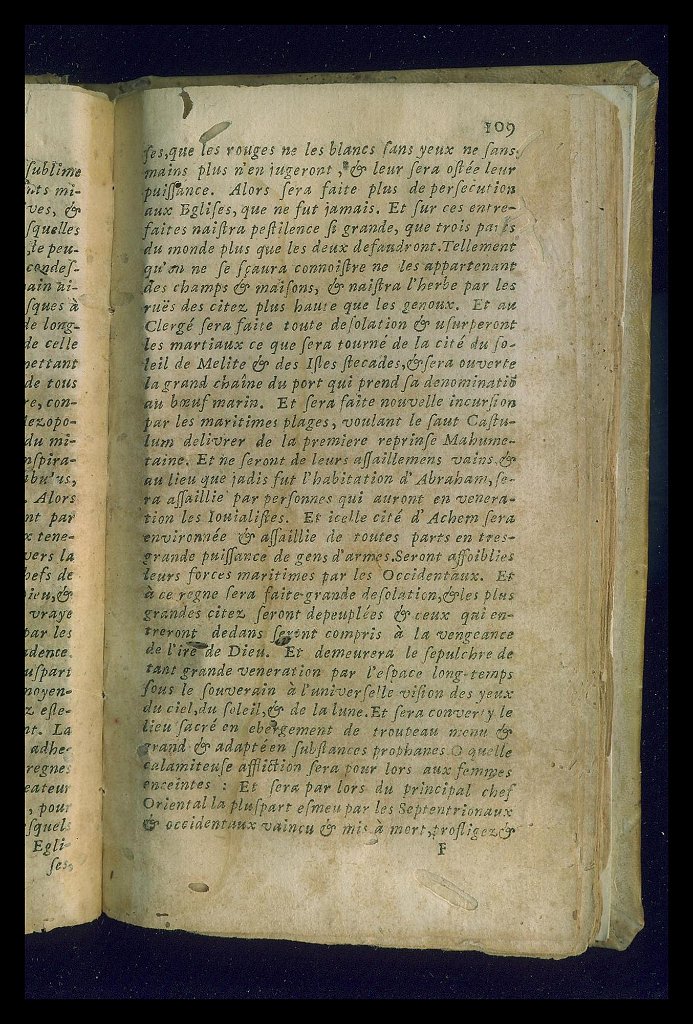 sublime
mi-
ves, &
squelles
le peu-
condes-
ain ai-
sques à
de long-
de celle
mettant
de tous
re, con-
lezopo-
du mi-
nspira-
ibu'us,
. Alors
nt par
x tene-
vers la
hefs de
ieu, &
vraye
par les
idence.
uspart
moyen-
z este-
nt. La
adhe-
regnes
eateur
, pour
squels
Egli-
ses,
109
ſes, que les rouges ne les blancs ſans yeux ne ſans
mains plus n'en jugeront, & leur ſera oſtée leur
puiſſance. Alors ſera faite plus de perſecution
aux Egliſes, que ne fut jamais. Et ſur ces entre-
faites naiſtra peſtilence ſi grande, que trois parts
du monde plus que les deux defaudront. Tellement
qu'on ne ſe ſçaura connoiſtre ne les appartenant
des champs & maiſons, & naiſtra l'herbe par les
ruës des citez plus haute que les genoux. Et au
Clergé ſera faite toute deſolation & uſurperont
les martiaux ce que ſera tourné de la cité du ſo-
leil de Melite & des Iſles ſtecades, & ſera ouverte
la grand chaîne du port qui prend ſa denominatiõ
au bœuf marin. Et ſera faite nouvelle incurſion
par les maritimes plages, voulant le ſaut Caſtu-
lum delivrer de la premiere reprinſe Mahume-
taine. Et ne ſeront de leurs aſſaillemens vains, &
au lieu que jadis fut l'habitation d'Abraham, ſe-
ra aſſaillie par perſonnes qui auront en venera-
tion les Iouialiſtes. Et icelle cité d'Achem ſera
environnée & aſſaillie de toutes parts en tres-
grande puiſſance de gens d'armes. Seront affoiblies
leurs forces maritimes par les Occidentaux. Et
à ce regne ſera faite grande deſolation, & les plus
grandes citez ſeront depeuplées & ceux qui en-
treront dedans ſeront compris à la vengeance
de l'ire de Dieu. Et demeurera le ſepulchre de
tant grande veneration par l'eſpace long-temps
ſous le ſouverain à l'univerſelle viſion des yeux
du ciel, du ſoleil, & de la lune. Et ſera converty le
lieu ſacré en ebergement de troupeau menu &
grand & adapté en ſubſtances prophanes. O quelle
calamiteuſe affliction ſera pour lors aux femmes
enceintes : Et ſera par lors du principal chef
Oriental la pluſpart eſmeu par les Septentrionaux
& occidentaux vaincu & mis à mort, profligez &
F